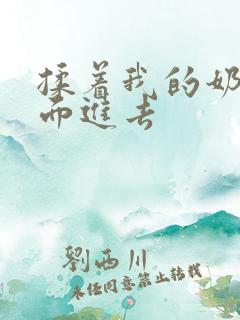 揉着我的奶
而进去
劉西川
未经同意禁止转载